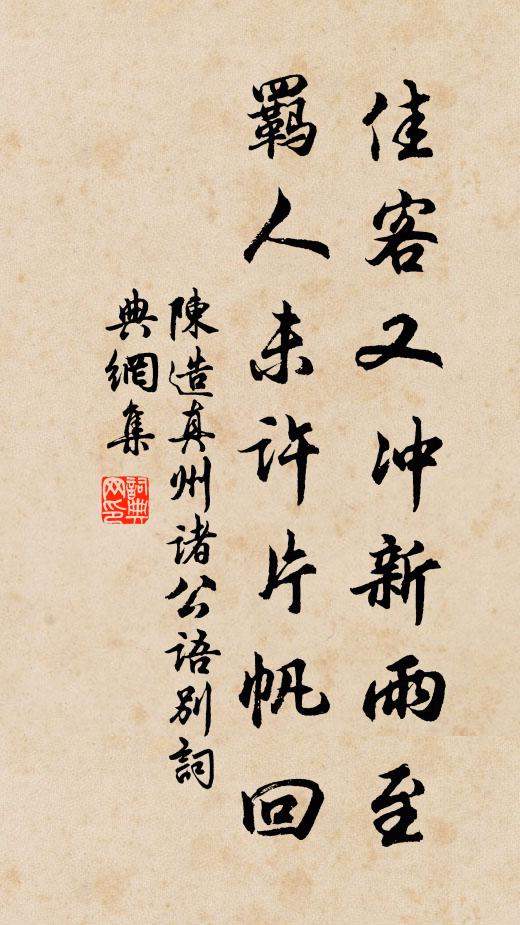 佳客又冲新雨至
羈人未許片帆回
陳造真州诸公语别詞
典網集
詞典网印